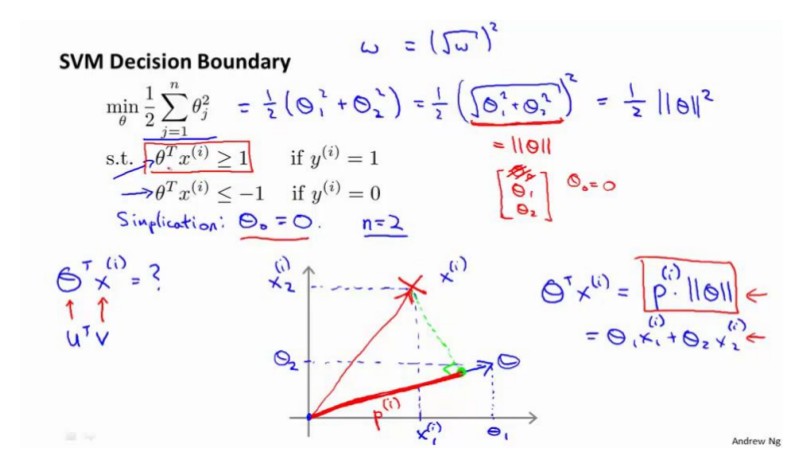 ω = (√ω)²
SVM Decision Boundary
min θ 1/2 ∑ j=1 n θ_j² = 1/2 (Θ₁² + Θ₂²) = 1/2 (√Θ₁² + Θ₂²)² = 1/2 ||Θ||²
= ||Θ||
s.t. θᵀx⁽ⁱ⁾ ≥ 1 if y⁽ⁱ⁾ = 1
→θᵀx⁽ⁱ⁾ ≤ −1 if y⁽ⁱ⁾ = 0
[Θ₁ Θ₂] Θ₀=0
Simplication: Θ₀ = 0. n=2
Θᵀx⁽ⁱ⁾ = ?
↑ ↑
uᵀv
x₂⁽ⁱ⁾
x⁽ⁱ⁾
Θ₂
Θ
p⁽ⁱ⁾
x₁⁽ⁱ⁾
Θ₁
Θᵀx⁽ⁱ⁾ = p⁽ⁱ⁾ · ||Θ|| ←
= Θ₁x₁⁽ⁱ⁾ + Θ₂x₂⁽ⁱ⁾ ←
Andrew Ng